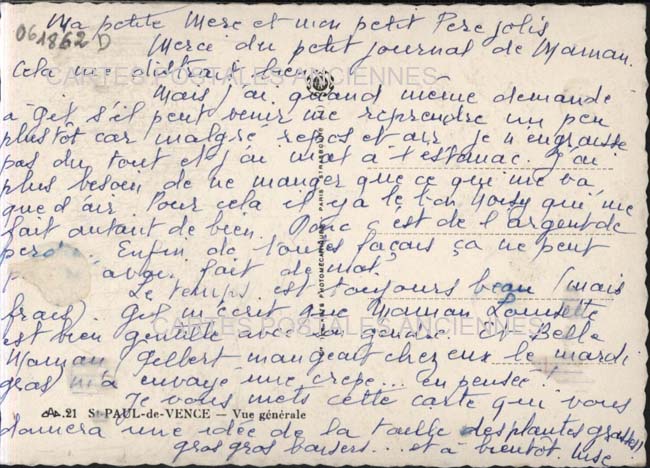 Ma petite Mere et mon petit Pere jolis
061862 D
Merci du petit journal de Maman.
Cela me distrait bien.
CARTES POSTALES ANCIENNES
Mais j'ai quand même demandé
a get s'il peut venir me reprendre un peu
plustôt car malgré repos et air je n'engraisse
pas du tout et j'ai mal a l'estomac. J'ai
plus besoin de ne manger que ce qui me va
que d'air. Pour cela il y a le bon Noisy qui me
fait autant de bien. Donc c'est de l'argent de
perdu. Enfin de toutes façons ça ne peut
avoir fait de mal.
Le temps est toujours beau (mais
frais). get m'écrit que Maman Louisette
est bien gentille avec son gendre. Et Belle
CARTES POSTALES ANCIENNES
Maman Gilbert mangeant chez eux le mardi
gras m'a envoyé une crepe... en pensée.
Je vous mets cette carte qui vous
21 St PAUL-de-VENCE — Vue générale
donnera une idée de la taille des plantes grasses!
gros gros baisers... et à bientôt